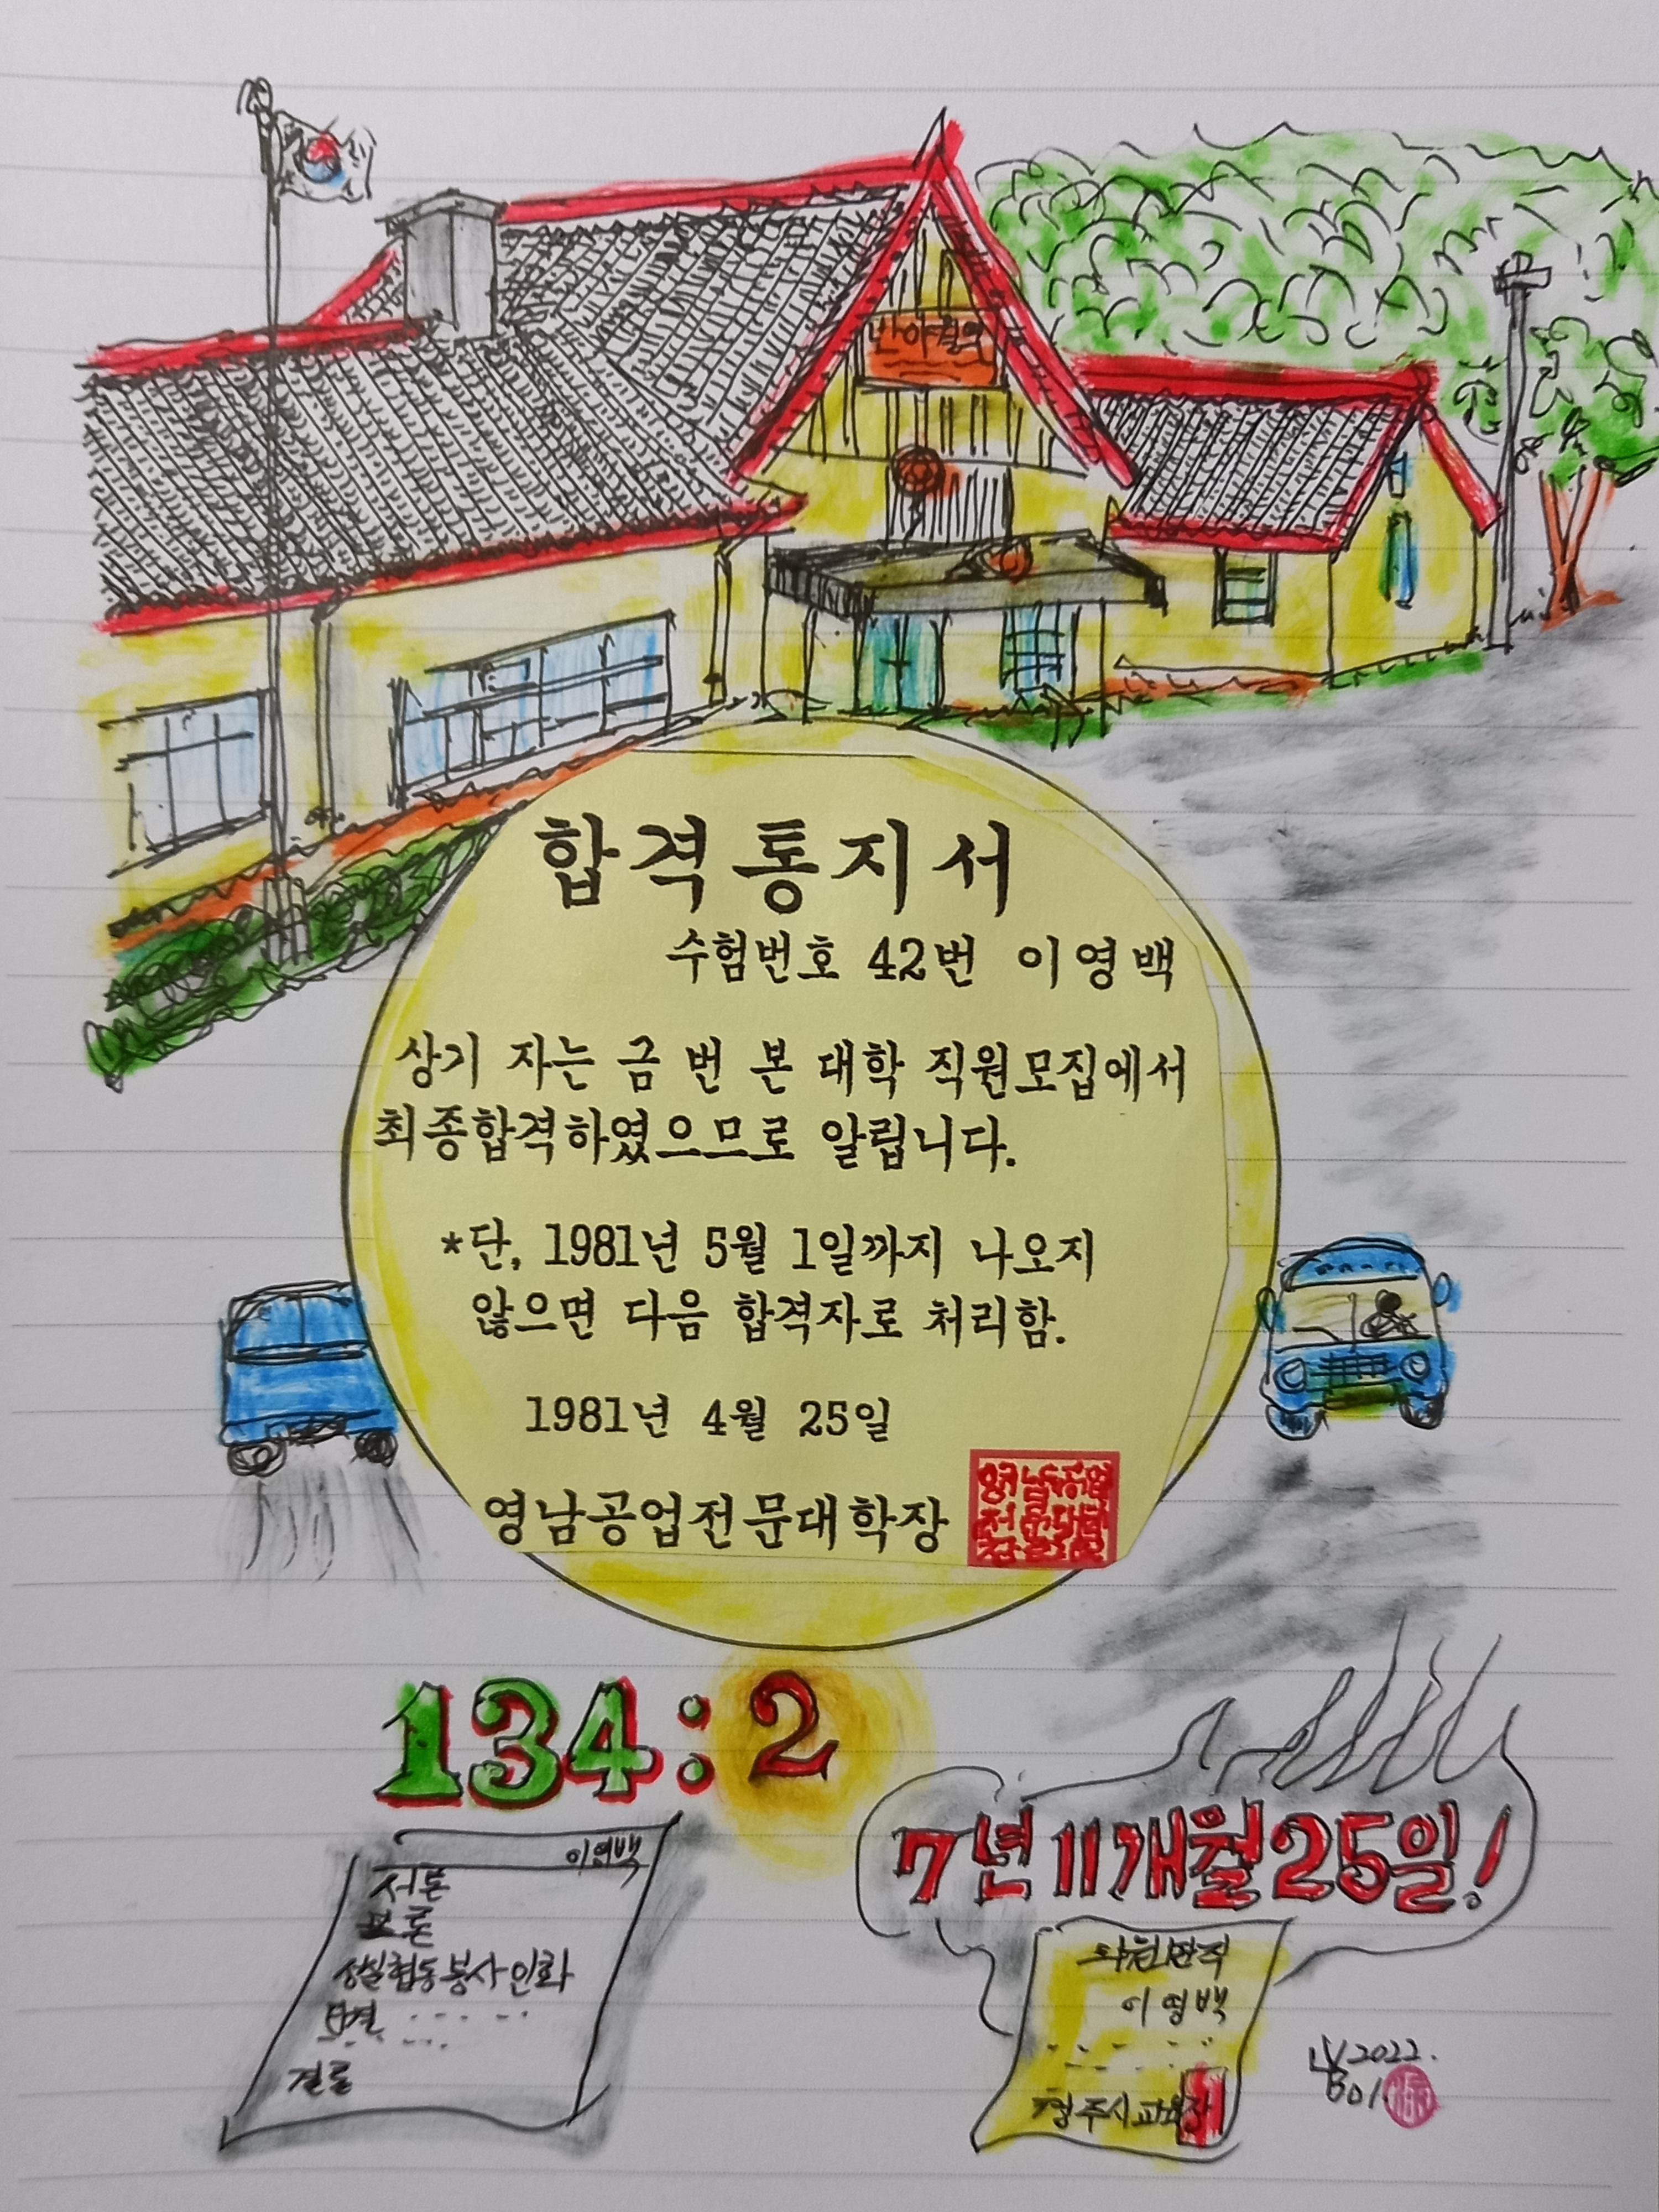 반야월역
합격통지서
수험번호 42번 이영백
상기 자는 금 번 본 대학 직원모집에서
최종합격하였으므로 알립니다.
*단, 1981년 5월 1일까지 나오지
않으면 다음 합격자로 처리함.
1981년 4월 25일
영남공업전문대학장
134:2
이영백
서론
본론
성실협동봉사인화
단결
결론
7년11개월25일!
이영백
경주시교육장
2022.